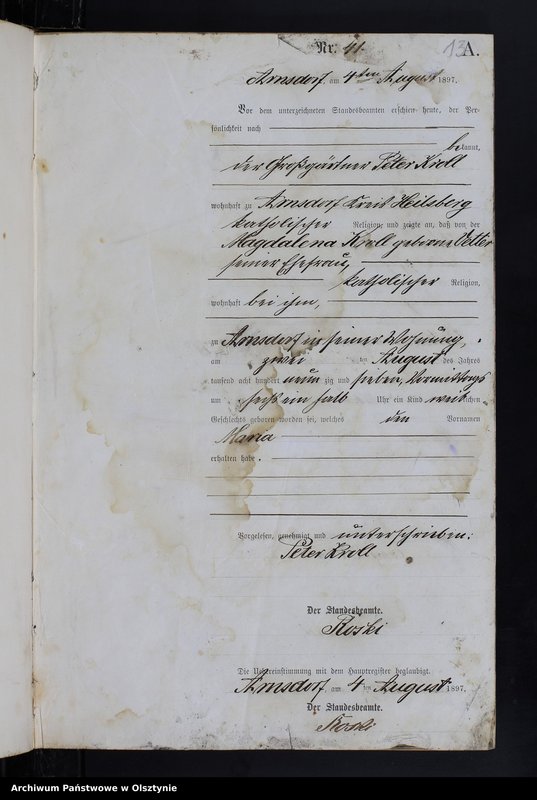 Nr. 41.
13 A.
Arnsdorf, am 4ten August 1897.
Vor dem unterzeichneten Standesbeamten erschien heute, der Per-
sönlichkeit nach
bekannt,
der Großgärtner Peter Kroll
wohnhaft zu Arnsdorf Kreis Heilsberg
katholischer Religion, und zeigte an, daß von der
Magdalena Kroll geborne
seiner Ehefrau,
katholischer Religion,
wohnhaft bei ihm,
zu Arnsdorf in seiner Wohnung,
am zwei ten August des Jahres
tausend acht hundert neun zig und sieben, Vormittags
um sechs ein halb Uhr ein Kind weiblichen
Geschlechts geboren worden sei, welches den Vornamen
Maria
erhalten habe.
Vorgelesen, genehmigt und unterschrieben:
Peter Kroll
Der Standesbeamte.
Roski
Die Uebereinstimmung mit dem Hauptregister beglaubigt.
Arnsdorf, am 4 ten August 1897.
Der Standesbeamte.
Roski
Archiwum Państwowe w Olsztynie